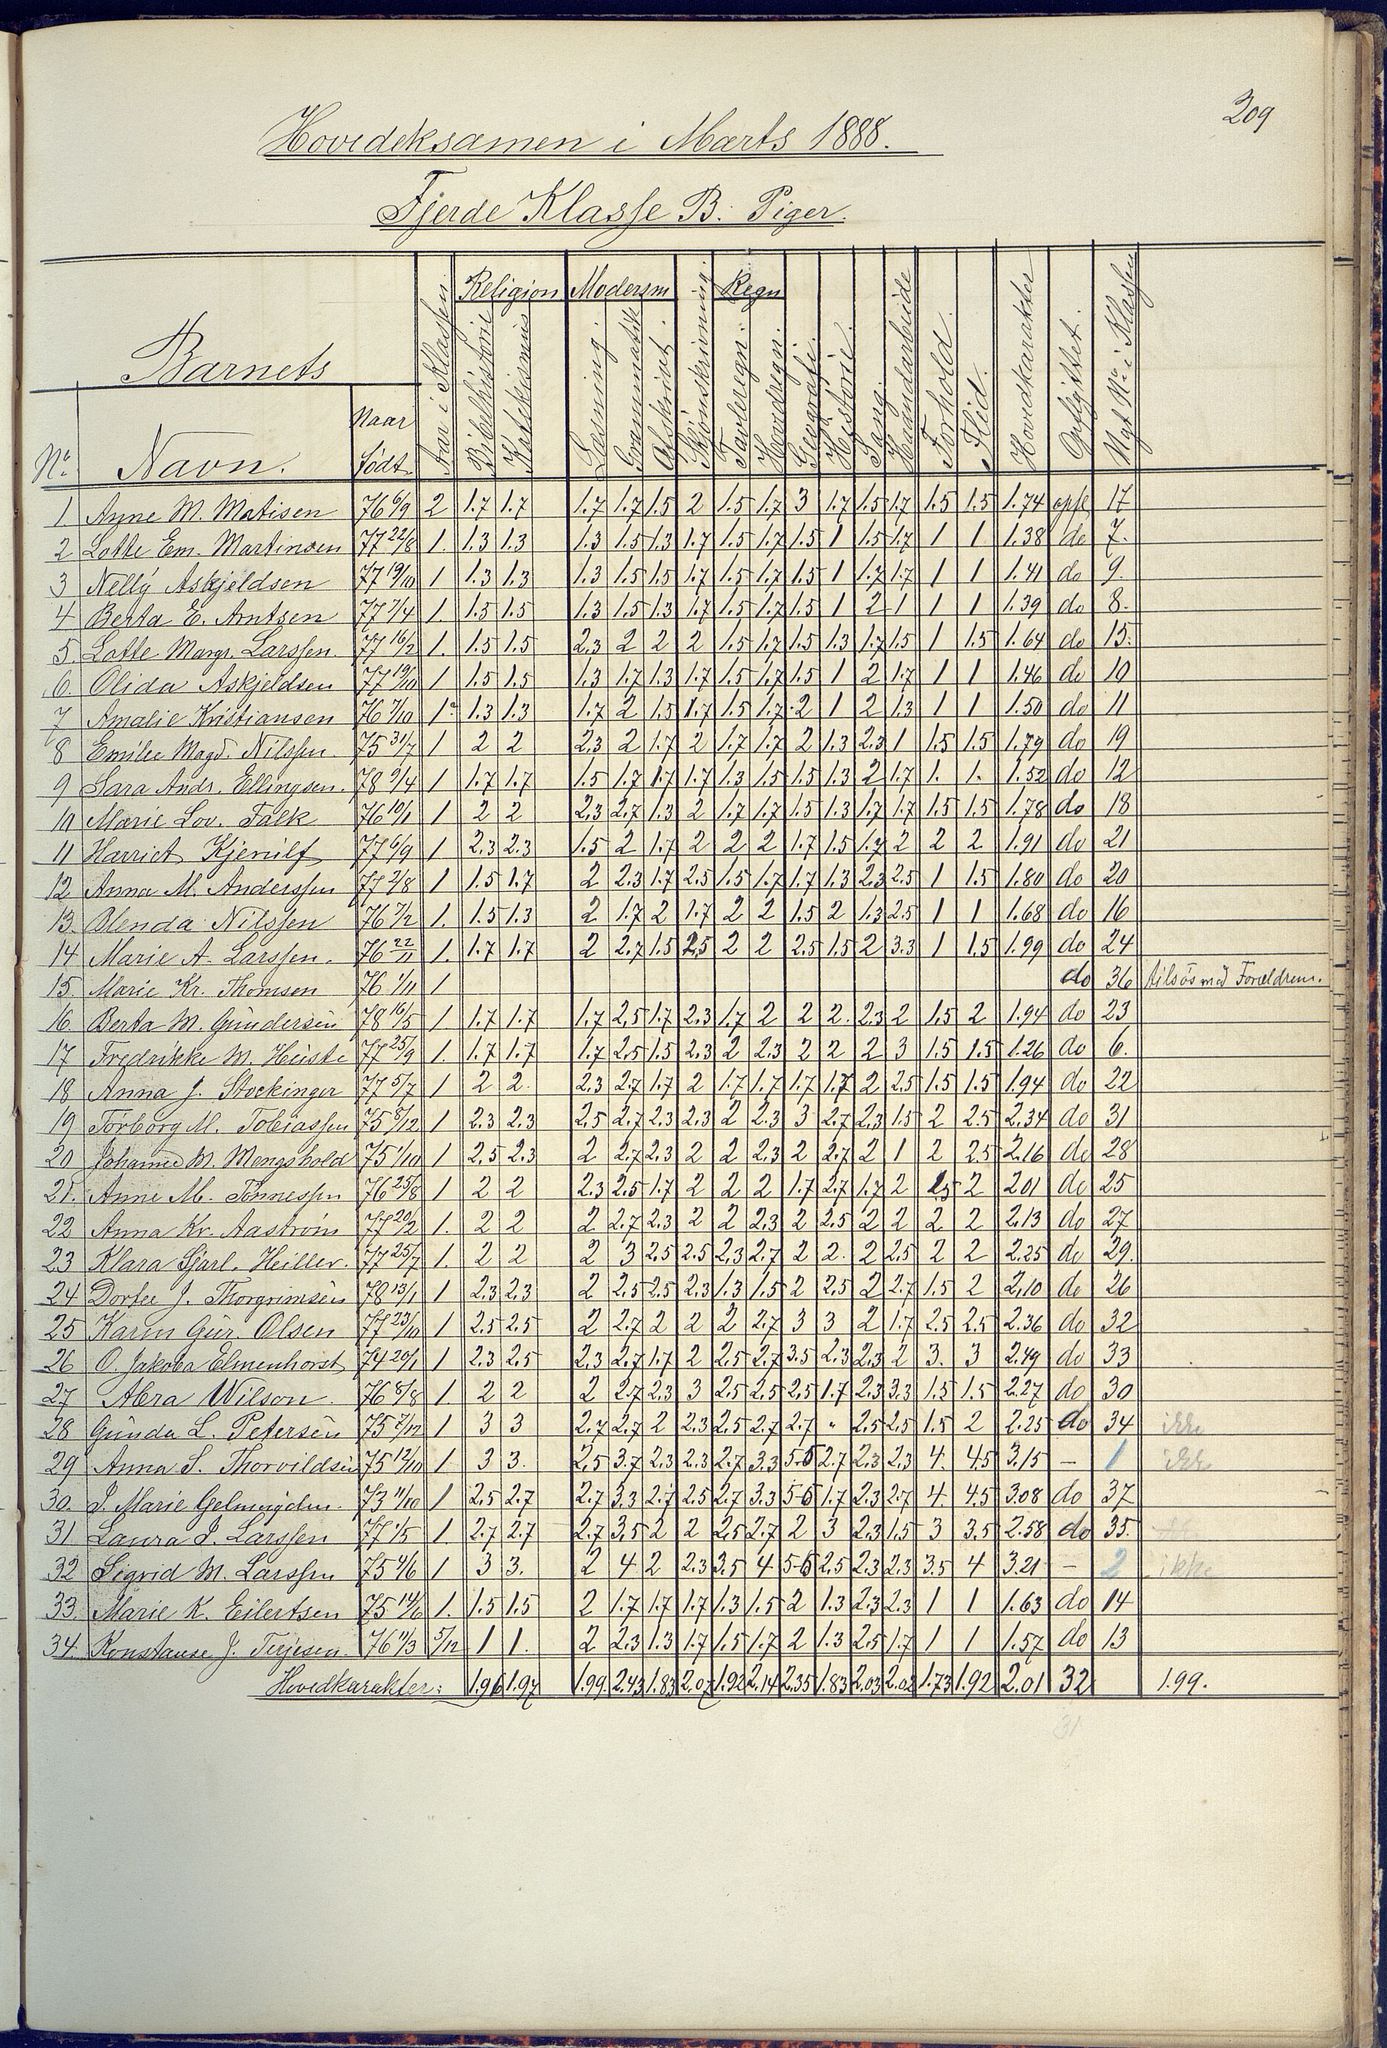 209
Hovedeksamen i Marts 1888.
Fjerde Klasse B. Piger.
Barnets
No. Navn. Naar Født. Aar i Klassen Religion Bibelhistorie Katekismus Modersm Læsning Grammatik Afskrivt. Skjönskrivning Regn Tavleregn. Hovedregn. Geografi. Historie. Sang. Haandarbeide Forhold. Flid. Hovedkarakter Opflyttet. Nyt No. i Klassen
1 Anne M. Matisen 76 6/9 2 1.7 1.7 1.7 1.7 1.5 2 1.5 1.7 3 1.7 1.5 1.7 1.5 1.5 1.74 opfl 17
2 Lotte Em. Martinsen 77 22/8 1. 1.3 1.3 1.3 1.5 1.3 1.7 1.5 1.7 1.5 1 1.5 1.7 1 1 1.38 do 7.
3 Nelly Askjeldsen 77 19/10 1 1.3 1.3 1.3 1.5 1.5 1.7 1.5 1.7 1.5 1 1.7 1.7 1 1 1.41 do 9.
4 Berta E. Arntsen 77 7/4 1. 1.5 1.5 1.3 1.5 1.3 1.7 1.5 1.7 1.5 1 2 1 1 1 1.39 do 8.
5. Lotte Margr. Larssen 77 16/2 1. 1.5 1.5 2.3 2 2 2 1.5 1.7 1.5 1.3 1.7 1.5 1 1.5 1.64 do 15.
6. Olida Askjeldsen 77 19/10 1 1.5 1.5 1.3 1.7 1.3 1.7 1.5 1.7 1.5 1 2 1.7 1 1 1.46 do 10
7 Amalie Kristiansen 76 7/10 1 1.3 1.3 1.7 2 1.5 1.7 1.5 1.7 2 1 2 1.3 1 1 1.50 do 11
8 Emilie Magd. Nilssen. 75 31/7 1 2 2 2.3 2 1.7 2 1.7 1.7 2 1.3 2.3 1 1.5 1.5 1.79 do 19
9 Sara Andr. Ellingsen. 78 2/4 1 1.7 1.7 1.5 1.7 1.7 1.7 1.3 1.5 1.5 1.3 2 1.7 1. 1. 1.52 do 12
10 Marie Lov. Falk 76 10/1 1 2 2 2.3 2.7 1.3 2 1.7 1.7 1.5 1.3 1.7 1.7 1.5 1.5 1.78 do 18
11 Harriet Kjenilf 77 6/9 1 2.3 2.3 1.5 2 1.7 2 2 2 1.7 1.5 1.7 2 2 2 1.91 do 21
12 Anna M. Anderssen 77 2/8 1 1.5 1.7 2 2.3 1.7 2.5 1.5 1.7 1.7 1.3 2.3 2.5 1 1.5 1.80 do 20
13. Blenda Nilssen 76 7/2 1. 1.5 1.3 2 1.7 2 1.7 2 2 1.5 2 1.3 2.5 1 1 1.68 do 16
14 Marie A. Larssen. 76 22/11 1. 1.7 1.7 2 2.7 1.5 2.5 2 2 2.5 1.5 2 3.3 1 1.5 1.99 do 24
15. Marie Kr. Thomsen 76 1/11 1 do 36 tilsös med Forældrene.
16. Berta M. Gundersen 78 16/5 1 1.7 1.7 1.7 2.5 1.7 2.3 1.7 2 2 2. 2.3 2 1.5 2 1.94 do 23
17 Fredrikke M. Heiste 77 25/9 1. 1.7 1.7 1.7 2.5 1.5 2.3 2 2.3 2 2 2 3 1.5 1.5 1.26 do 6.
18 Anna J. Stockinger 77 5/7 1 2 2. 2.3 2.7 1.7 2 1.7 1.7 1.7 1.7 2 2.5 1.5 1.5 1.94 do 22
19 Torborg M. Tobiassen 75 8/12 1 2.3 2.3 2.5 2.7 2.3 2.3 2 2.3 3 2.7 2.3 1.5 2 2.5 2.34 do 31
20 Johanne M. Mengshold 75 1/10 1 2.5 2.3 2 2.7 2.3 2 2 2.3 2 2.7 2 1 2 2.5 2.16 do 28
21. Anne M. Tönnessen 76 25/8 1 2 2 2.3 2.5 1.7 2 2 2 1.7 2.7 1.7 2 1.5 2 2.01 do 25
22 Anna Kr. Aaström 77 20/2 1. 2 2 2 2.7 2.3 2 2 2.3 2 2.5 2 2 2 2 2.13 do 27
23 Klara Sjarl. Heiller. 77 25/7 1. 2 2 2 3 2.5 2.5 2.3 2.7 2 2. 2 2.5 2 2 2.25 do 29.
24 Dortee J. Thorgrimsen 78 13/1 1 2.3 2.3 2 2.5 2.5 2.3 1.3 1.5 2 2.5 2 2.7 1.5 2 2.10 do 26
25 Karen Gur. Olsen 77 23/10 1 2.5 2.5 2 2.7 2 2 2 2.7 3 3 2 1.7 2.5 2.5 2.36 do 32
26 O. Jakoba Elmenhorst 74 20/1 1 2.3 2.5 2.3 2.7 1.7 2 2.5 2.7 3.5 2.3 2.3 2 3. 3 2.49 do 33
27 Abra Wilson 76 8/8 1. 2 2 2 2.7 2.3 3 2.5 2.5 2.5 1.7 2.3 3.3 1.5 1.5 2.27 do 30
28 Gunda L. Petersen 75 7/12 1 3 3 2.7 2.7 2 2.3 2.5 2.7 2.7 " 2.5 2.5 1.5 2 2.25 do 34 ikke
29 Anna S. Thorvildsen 75 12/10 1 3 3. 2.5 3.7 2.3 2.3 2.7 3.3 5-6 2.7 2.3 2.3 4. 4.5 3.15 — 1 ikke
30. J. Marie Gelmuyden. 73 11/10 1 2.5 2.7 2.7 3.3 2.7 2.5 2.7 3.3 5-6 1.7 2.3 2.7 4. 4.5 3.08 do 37
31 Laura J. Larssen 77 1/5 1. 2.7 2.7 2.7 3.5 2 2 2.5 2.7 2 3 2.3 1.5 3 3.5 2.58 do 35.
32 Sigrid M. Larssen 75 4/6 1 3 3. 2 4 2 2.3 3.5 4 5-6 2.5 2.3 2.3 3.5 4 3.21 — 2 ikke
33. Marie K. Eilertsen 75 14/6 1. 1.5 1.5 2 1.7 1.7 1.7 1.3 1.5 2 1.3 2.3 2.3 1 1 1.63 do 14
34. Konstanse J. Terjesen. 76 11/3 5/12 1 1. 2 2.3 1.3 1.7 1.5 1.7 2 1.3 2.5 1.7 1 1 1.57 do 13
Hovedkarakter: 1.96 1.97 1.99. 2.43 1.83 2.07 1.92 2.14 2.35 1.83 2.03 2.02 1.73 1.92 2.01 32 1.99.
31